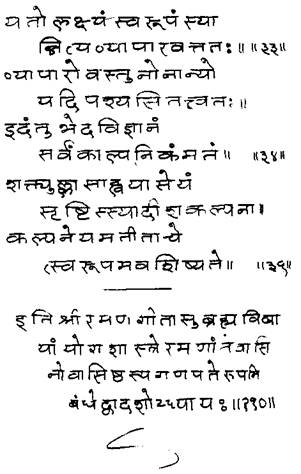 यतो लक्ष्यं स्वरूपं स्या
न्नित्यव्यापारवत्ततः॥ ॥३३॥
व्यापारो वस्तुनो नान्यो
यदि पश्यसि तत्त्वतः॥
इदंतु भेदविज्ञानं
सर्वं काल्पनिकं मतं॥ ॥३४॥
शक्त्युल्लासाह्वया सेयं
सृष्टिस्स्यादीशकल्पना।
कल्पनेयमतीता चे
त्स्वरूपमवशिष्यते॥ ॥३५॥
इति श्रीरमणगीतासु ब्रह्मविद्या
यां योगशास्त्रे रमणांतेवासि
नो वासिष्ठस्य गणपतेरुपनि
बंधे द्वादशोऽध्यायः॥